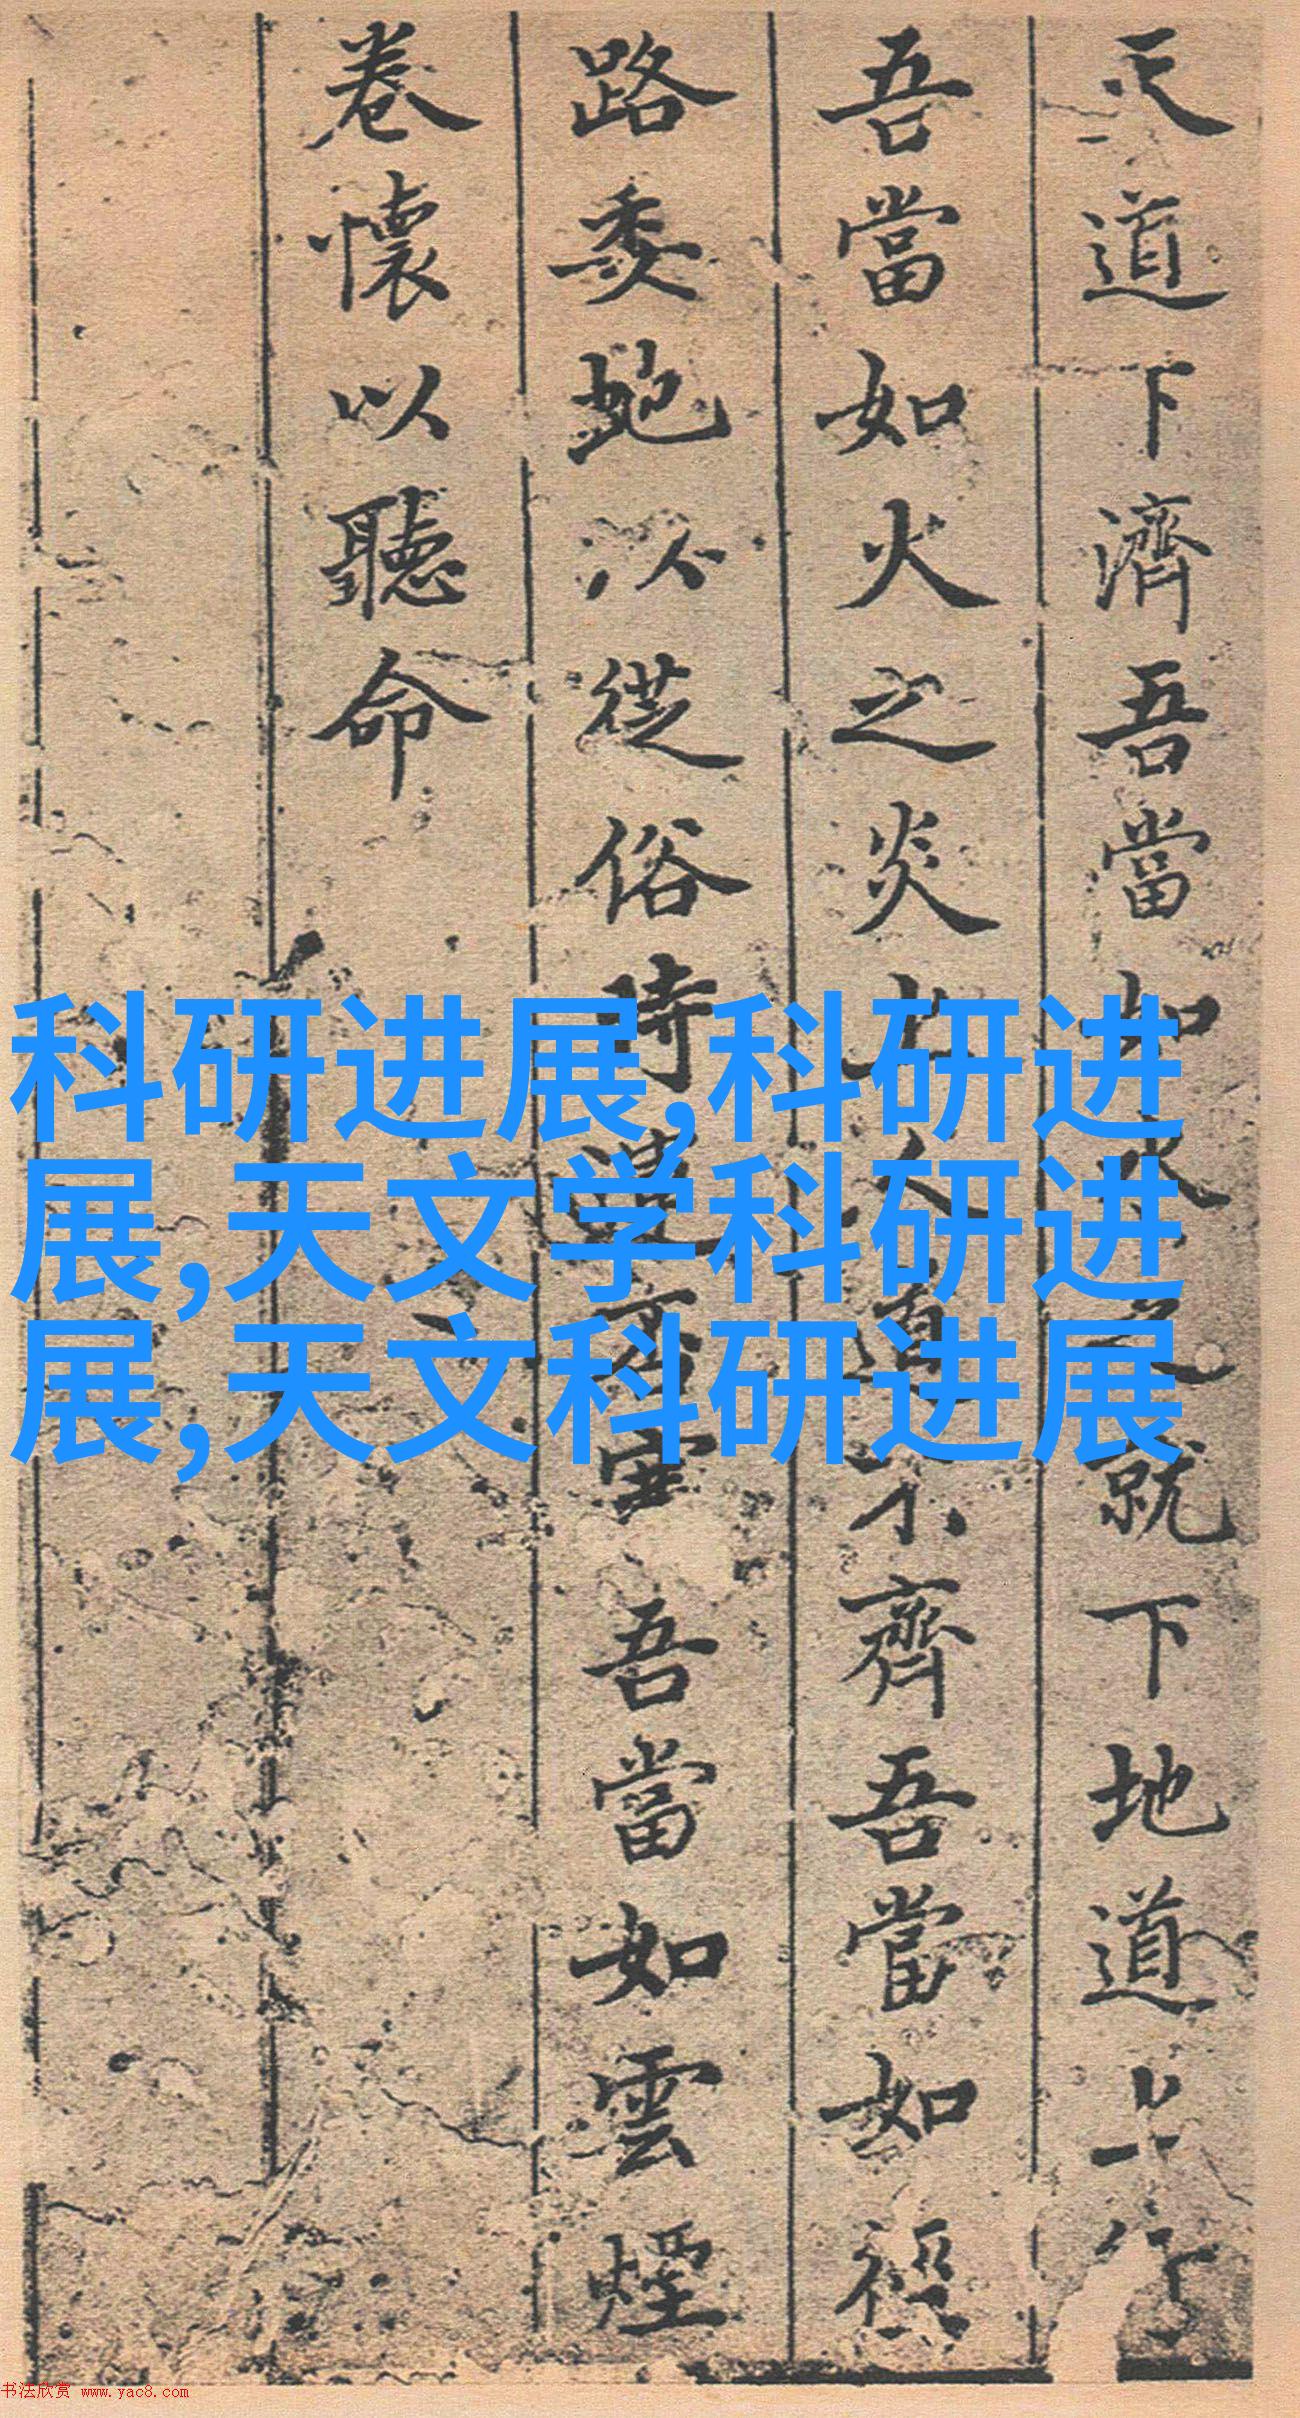 天道下濟吾當如水之就下地道上行
吾當如火之炎上人道不齊吾當如徑
路委虵以從俗時遭否塞吾當如雲煙
卷懷以聽命
科研进展,科研进
展,天文学科研进
展,天文科研进展
书法欣赏 www.yac8.com